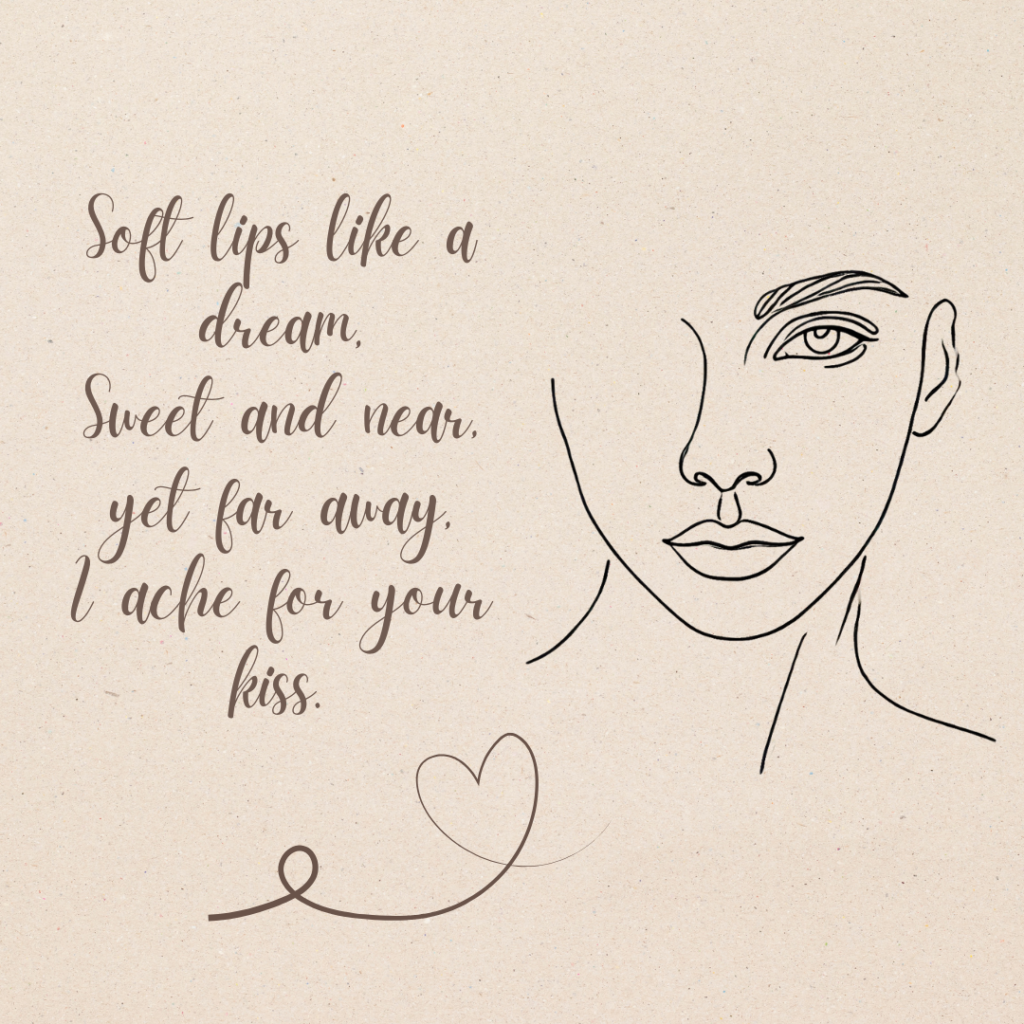 Soft lips like a
dream,
Sweet and near,
yet far away,
I ache for your
kiss.